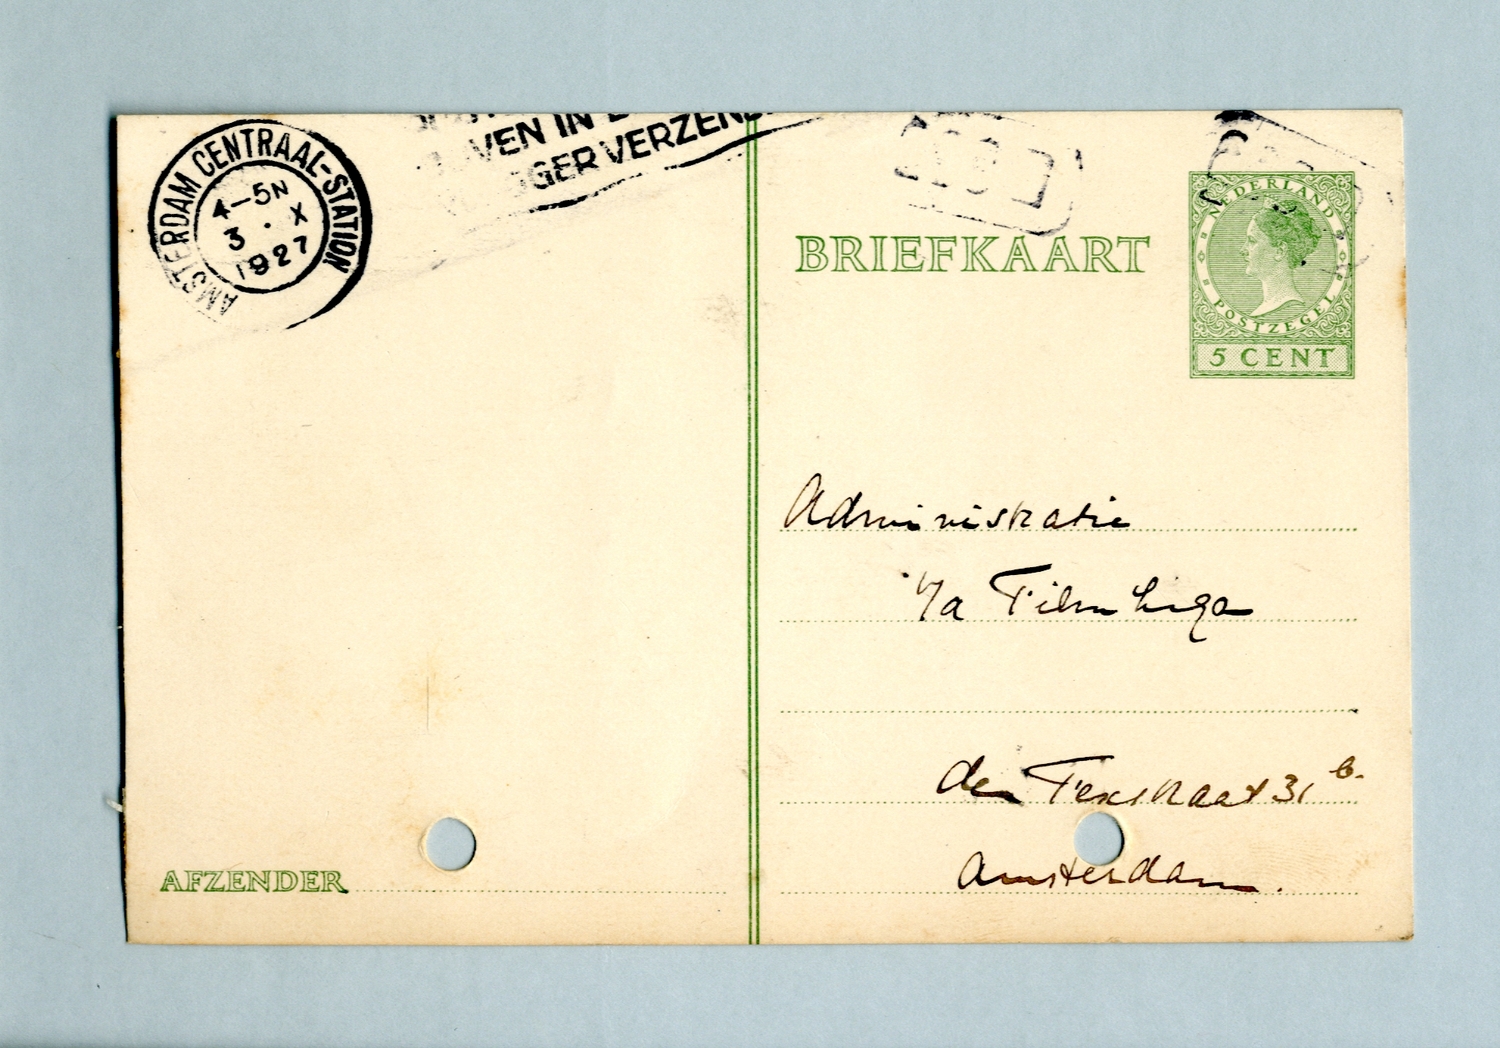 AMSTERDAM CENTRAAL-STATION
4-5N
3 . X
1927
VEN IN
GER VERZEN
BRIEFKAART
NEDERLAND
POSTZEGEL
5 CENT
Administratie
v/a Film Liga
den Texstraat 31 b.
Amsterdam.
AFZENDER